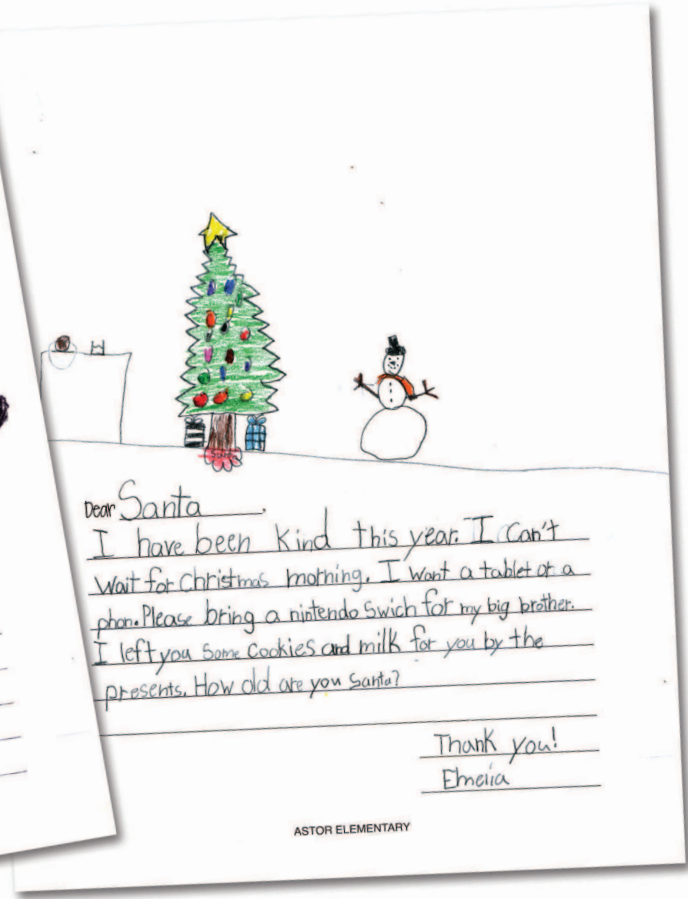 Dear Santa.
I have been kind this year. I can't
wait for Christmas morning. I want a tablet or a
phon. Please bring a nintendo Swich for my big brother.
I left you some cookies and milk for you by the
presents. How old are you Santa?
Thank you!
Emelia
ASTOR ELEMENTARY